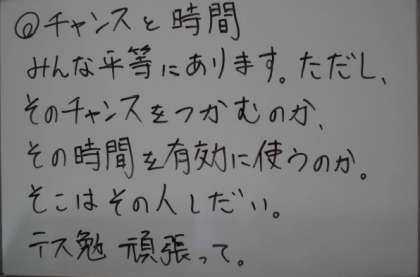 @チャンスと時間
みんな平等にあります。ただし、
そのチャンスをつかむのか、
その時間を有効に使うのか。
そこはその人しだい。
テス勉 頑張って。